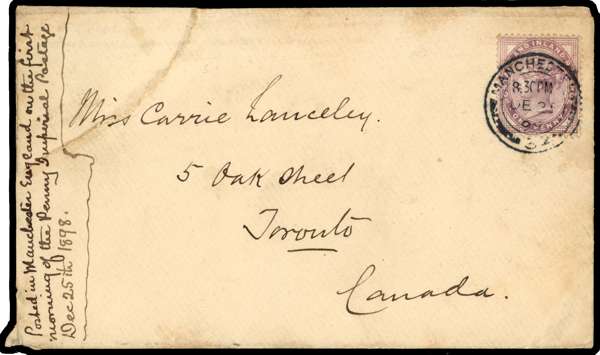 Posted in Manchester England on the first
morning of the Penny Imperial Postage
Dec 25th 1898.
Miss Carrie Lanceley.
5 Oak Street
Toronto
Canada.
MANCHES
8.30 PM
DE 2
32